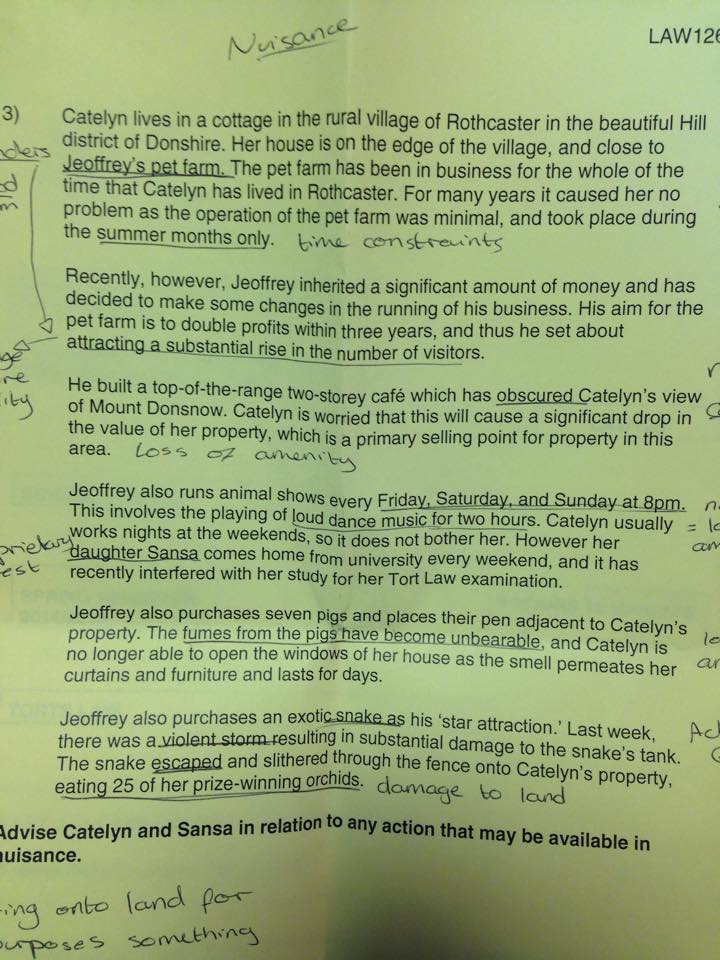 Nuisance
LAW126
3)
Catelyn lives in a cottage in the rural village of Rothcaster in the beautiful Hill
district of Donshire. Her house is on the edge of the village, and close to
Jeoffrey's pet farm. The pet farm has been in business for the whole of the
time that Catelyn has lived in Rothcaster. For many years it caused her no
problem as the operation of the pet farm was minimal, and took place during
the summer months only. time constraints
Recently, however, Jeoffrey inherited a significant amount of money and has
decided to make some changes in the running of his business. His aim for the
pet farm is to double profits within three years, and thus he set about
attracting a substantial rise in the number of visitors.
He built a top-of-the-range two-storey café which has obscured Catelyn's view
of Mount Donsnow. Catelyn is worried that this will cause a significant drop in
the value of her property, which is a primary selling point for property in this
area. Loss of amenity
Jeoffrey also runs animal shows every Friday, Saturday, and Sunday at 8pm.
This involves the playing of loud dance music for two hours. Catelyn usually
works nights at the weekends, so it does not bother her. However her
daughter Sansa comes home from university every weekend, and it has
recently interfered with her study for her Tort Law examination.
Jeoffrey also purchases seven pigs and places their pen adjacent to Catelyn's
property. The fumes from the pigs have become unbearable, and Catelyn is
no longer able to open the windows of her house as the smell permeates her
curtains and furniture and lasts for days.
Jeoffrey also purchases an exotic snake as his 'star attraction.' Last week,
there was a violent storm resulting in substantial damage to the snake's tank.
The snake escaped and slithered through the fence onto Catelyn's property,
eating 25 of her prize-winning orchids. damage to land
Advise Catelyn and Sansa in relation to any action that may be available in
nuisance.
ing onto land for
purposes something